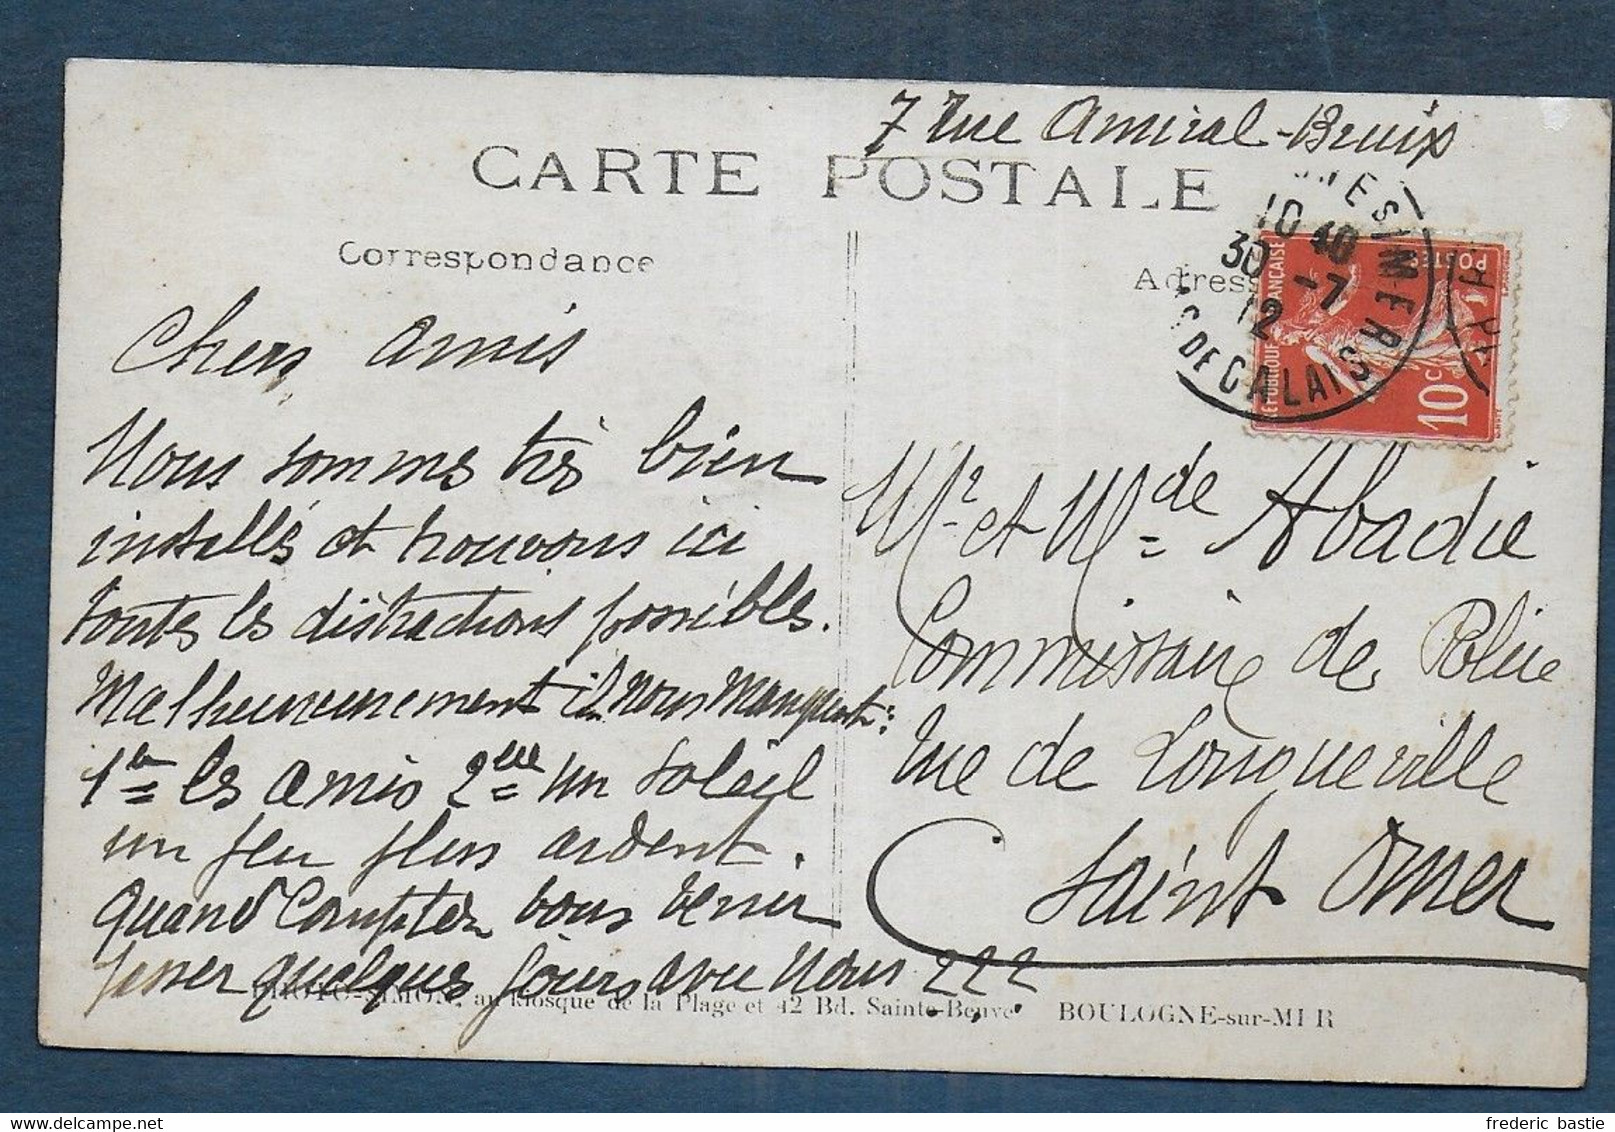 7 rue Amiral-Bruix
CARTE POSTALE
Correspondance
Adresse
Chers Amis
Nous sommes très bien
installés et trouvons ici
toutes les distractions possibles.
Malheureusement il nous manquent:
1er = les amis 2eme = un soleil
un peu plus ardent.
Quand Comptez vous venir
passer quelques jours avec nous ???
Mr et Mde = Abadie
Commissaire de Police
rue de Longueville
Saint Omer
10 40
30 -7
12
S/MER
PAS DE CALAIS
REPUBLIQUE FRANÇAISE
POSTES
10c
PHOTO-SIMON, au kiosque de la Plage et 42 Bd. Sainte-Beuve BOULOGNE-sur-MER
frederic bastie